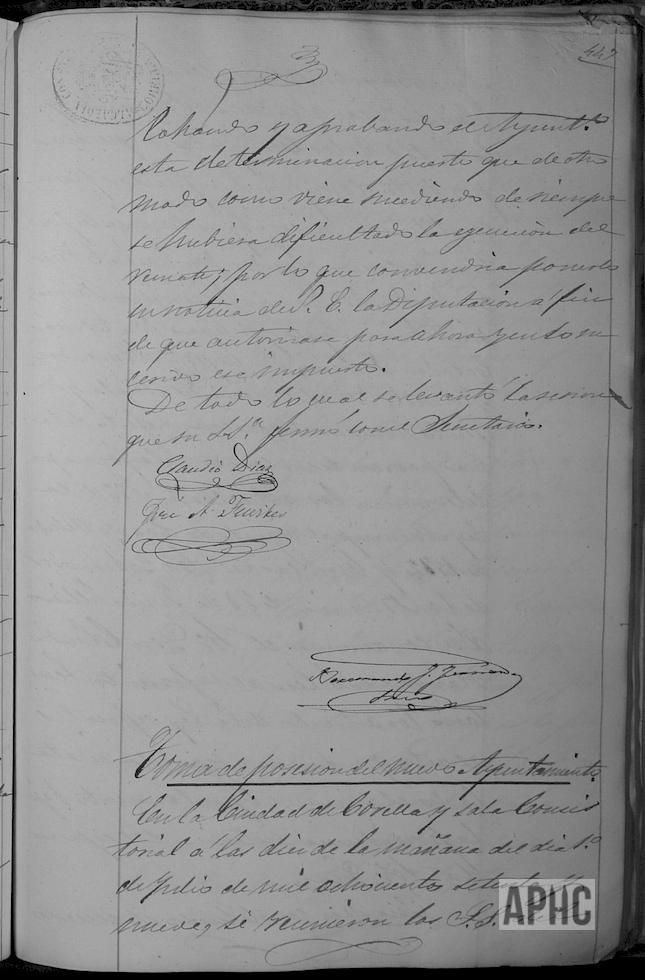 447
y aprobando el Ayunt.º
esta determinacion puesto que de otro
modo como viene sucediendo de siempre
se hubiera dificultado la ejecucion del
remate; por lo que convendria ponerlo
en noticia de S. E. la Diputación á fin
de que autorizase para ahora y en lo su
cesivo ese impuesto.
De todo lo cual se levantó la sesion
que su Sª firmó con el Secretario.
Claudio Diaz
José A. Fuertes
Toma de posesion del nuevo Ayuntamiento.
En la Ciudad de Corella y sala Consis
torial á las diez de la mañana del dia 1.º
de Julio de mil ochocientos setenta y
nueve, se reunieron los S.S.
APHC